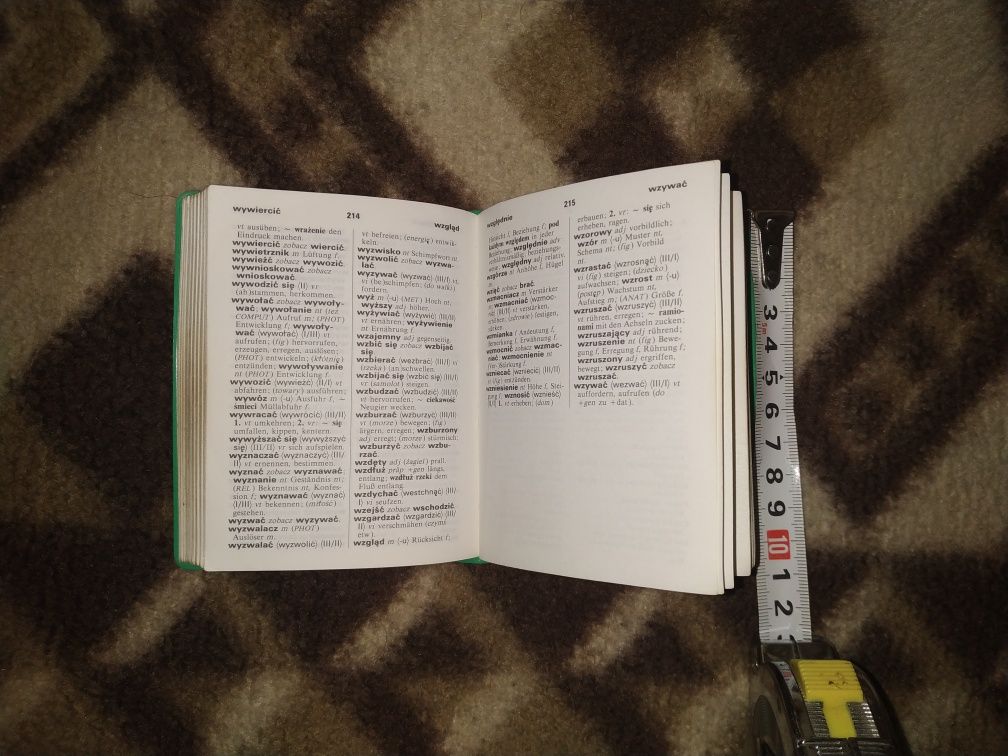 wywiercić
214
wzgląd
vt ausüben; ~ wrażenie den
Eindruck machen.
wywiercić zobacz wiercić.
wywietrznik m Lüftung f.
wywieźć zobacz wywozić.
wywnioskować zobacz
wnioskować.
wywodzić się ⟨II⟩ vr
(ab)stammen, herkommen.
wywołać zobacz wywoły-
wać; wywołanie nt (też
COMPUT) Aufruf m; (PHOT)
Entwicklung f; wywoły-
wać ⟨wywołać⟩ ⟨I/III⟩ vt
aufrufen; (fig) hervorrufen,
erzeugen, erregen, auslösen;
(PHOT) entwickeln; (kłótnię)
entzünden; wywoływanie
nt (PHOT) Entwicklung f.
wywozić ⟨wywieźć⟩ ⟨II/I⟩ vt
abfahren; (towary) ausführen;
wywóz m (-u) Ausfuhr f; ~
śmieci Müllabfuhr f.
wywracać ⟨wywrócić⟩ ⟨III/II⟩
1. vt umkehren; 2. vr: ~ się
umfallen, kippen, kentern.
wywyższać się ⟨wywyższyć
się⟩ ⟨III/II⟩ vr sich aufspielen.
wyznaczać ⟨wyznaczyć⟩ ⟨III/
II⟩ vt ernennen, bestimmen.
wyznać zobacz wyznawać;
wyznanie nt Geständnis nt;
(REL) Bekenntnis nt, Konfes-
sion f; wyznawać ⟨wyznać⟩
⟨I/III⟩ vt bekennen; (miłość)
gestehen.
wyzwać zobacz wyzywać.
wyzwalacz m (PHOT)
Auslöser m.
wyzwalać ⟨wyzwolić⟩ ⟨III/II⟩
vt befreien; (energię) entwik-
keln.
wyzwisko nt Schimpfwort nt.
wyzwolić zobacz wyzwa-
lać
wyzywać ⟨wyzwać⟩ ⟨III/I⟩ vt
(be)schimpfen; (do walki)
fordern.
wyż m (-u) (MET) Hoch nt.
wyższy adj höher.
wyżywiać ⟨wyżywić⟩ ⟨III/II⟩
vt ernähren; wyżywienie
nt Ernährung f.
wzajemny adj gegenseitig.
wzbić się zobacz wzbijać
się.
wzbierać ⟨wezbrać⟩ ⟨III/I⟩ vi
(rzeka) (an)schwellen.
wzbijać się ⟨wzbić się⟩ ⟨III/I⟩
vr (samolot) steigen.
wzbudzać ⟨wzbudzić⟩ ⟨III/II⟩
vt hervorrufen; ~ ciekawość
Neugier wecken.
wzburzać ⟨wzburzyć⟩ ⟨III/II⟩
vt (morze) bewegen; (fig)
ärgern, erregen; wzburzony
adj erregt; (morze) stürmisch;
wzburzyć zobacz wzbu-
rzać.
wzdęty adj (żagiel) prall.
wzdłuż präp +gen längs,
entlang; wzdłuż rzeki dem
Fluß entlang.
wzdychać ⟨westchnąć⟩ ⟨III/
I⟩ vi seufzen.
wzejść zobacz wschodzić.
wzgardzać ⟨wzgardzić⟩ ⟨III/
II⟩ vi verschmähen (czymś
etw).
wzgląd m (-u) Rücksicht f;
względnie
215
wzywać
f, Beziehung f; pod
każdym względem in jeder
Beziehung; względnie adv
verhältnismäßig; beziehungs-
weise; względny adj relativ.
wzgórze nt Anhöhe f, Hügel
m.
wziąć zobacz brać.
wzmacniacz m Verstärker
m; wzmacniać ⟨wzmoc-
nić⟩ ⟨III/II⟩ vt verstärken,
stärken; (zdrowie) festigen,
stärken.
wzmianka f Andeutung f,
Bemerkung f, Erwähnung f.
wzmocnić zobacz wzmac-
niać; wzmocnienie nt (fig)
Stärkung f.
wzniecać ⟨wzniecić⟩ ⟨III/II⟩
vt (fig) entzünden.
wzniesienie nt Höhe f, Stei-
gung f; wznosić ⟨wznieść⟩
⟨II/I⟩ 1. vt erheben; (dom)
erbauen; 2. vr: ~ się sich
erheben, ragen.
wzorowy adj vorbildlich;
wzór m (-u) Muster nt,
Schema nt; (fig) Vorbild
nt.
wzrastać ⟨wzrosnąć⟩ ⟨III/I⟩
vi (fig) steigen; (dziecko)
aufwachsen; wzrost m (-u)
(postęp) Wachstum nt,
Aufstieg m; (ANAT) Größe f.
wzruszać ⟨wzruszyć⟩ ⟨III/II⟩
vt rühren, erregen; ~ ramio-
nami mit den Achseln zucken;
wzruszający adj rührend;
wzruszenie nt (fig) Bewe-
gung f, Erregung f, Rührung f;
wzruszony adj ergriffen,
bewegt; wzruszyć zobacz
wzruszać.
wzywać ⟨wezwać⟩ ⟨III/I⟩ vt
auffordern, aufrufen (do
+gen zu +dat).
3
3
5m
4
5
6
7
8
9
10
1
2